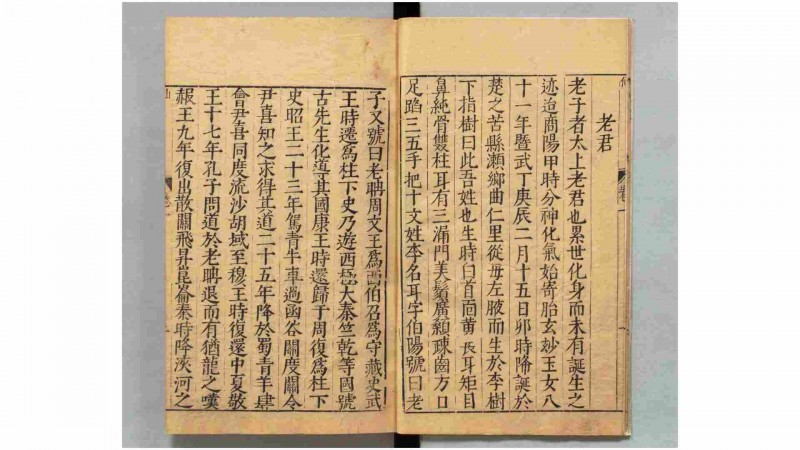 老君
老子者太上老君也累世化身而未有誕生之
迹迨商陽甲時分神化氣始寄胎玄妙玉女八
十一年暨武丁庚辰二月十五日卯時降誕於
楚之苦縣瀨鄉曲仁里從母左腋而生於李樹
下指樹曰此吾姓也生時白首面黃長耳矩目
鼻純骨雙柱耳有三漏門美鬚廣顙疎齒方口
足蹈三五手把十文姓李名耳字伯陽號曰老
子又號曰老聃周文王為西伯召為守藏史武
王時遷為柱下史乃遊西極大秦竺乾等國號
古先生化導其國康王時還歸于周復為柱下
史昭王二十三年駕青牛車過函谷關度關令
尹喜知之求得其道二十五年降於蜀青羊肆
會尹喜同度流沙胡域至穆王時復還中夏敬
王十七年孔子問道於老聃退而有猶龍之嘆
赧王九年復出散關飛昇崑崙秦時降陝河之